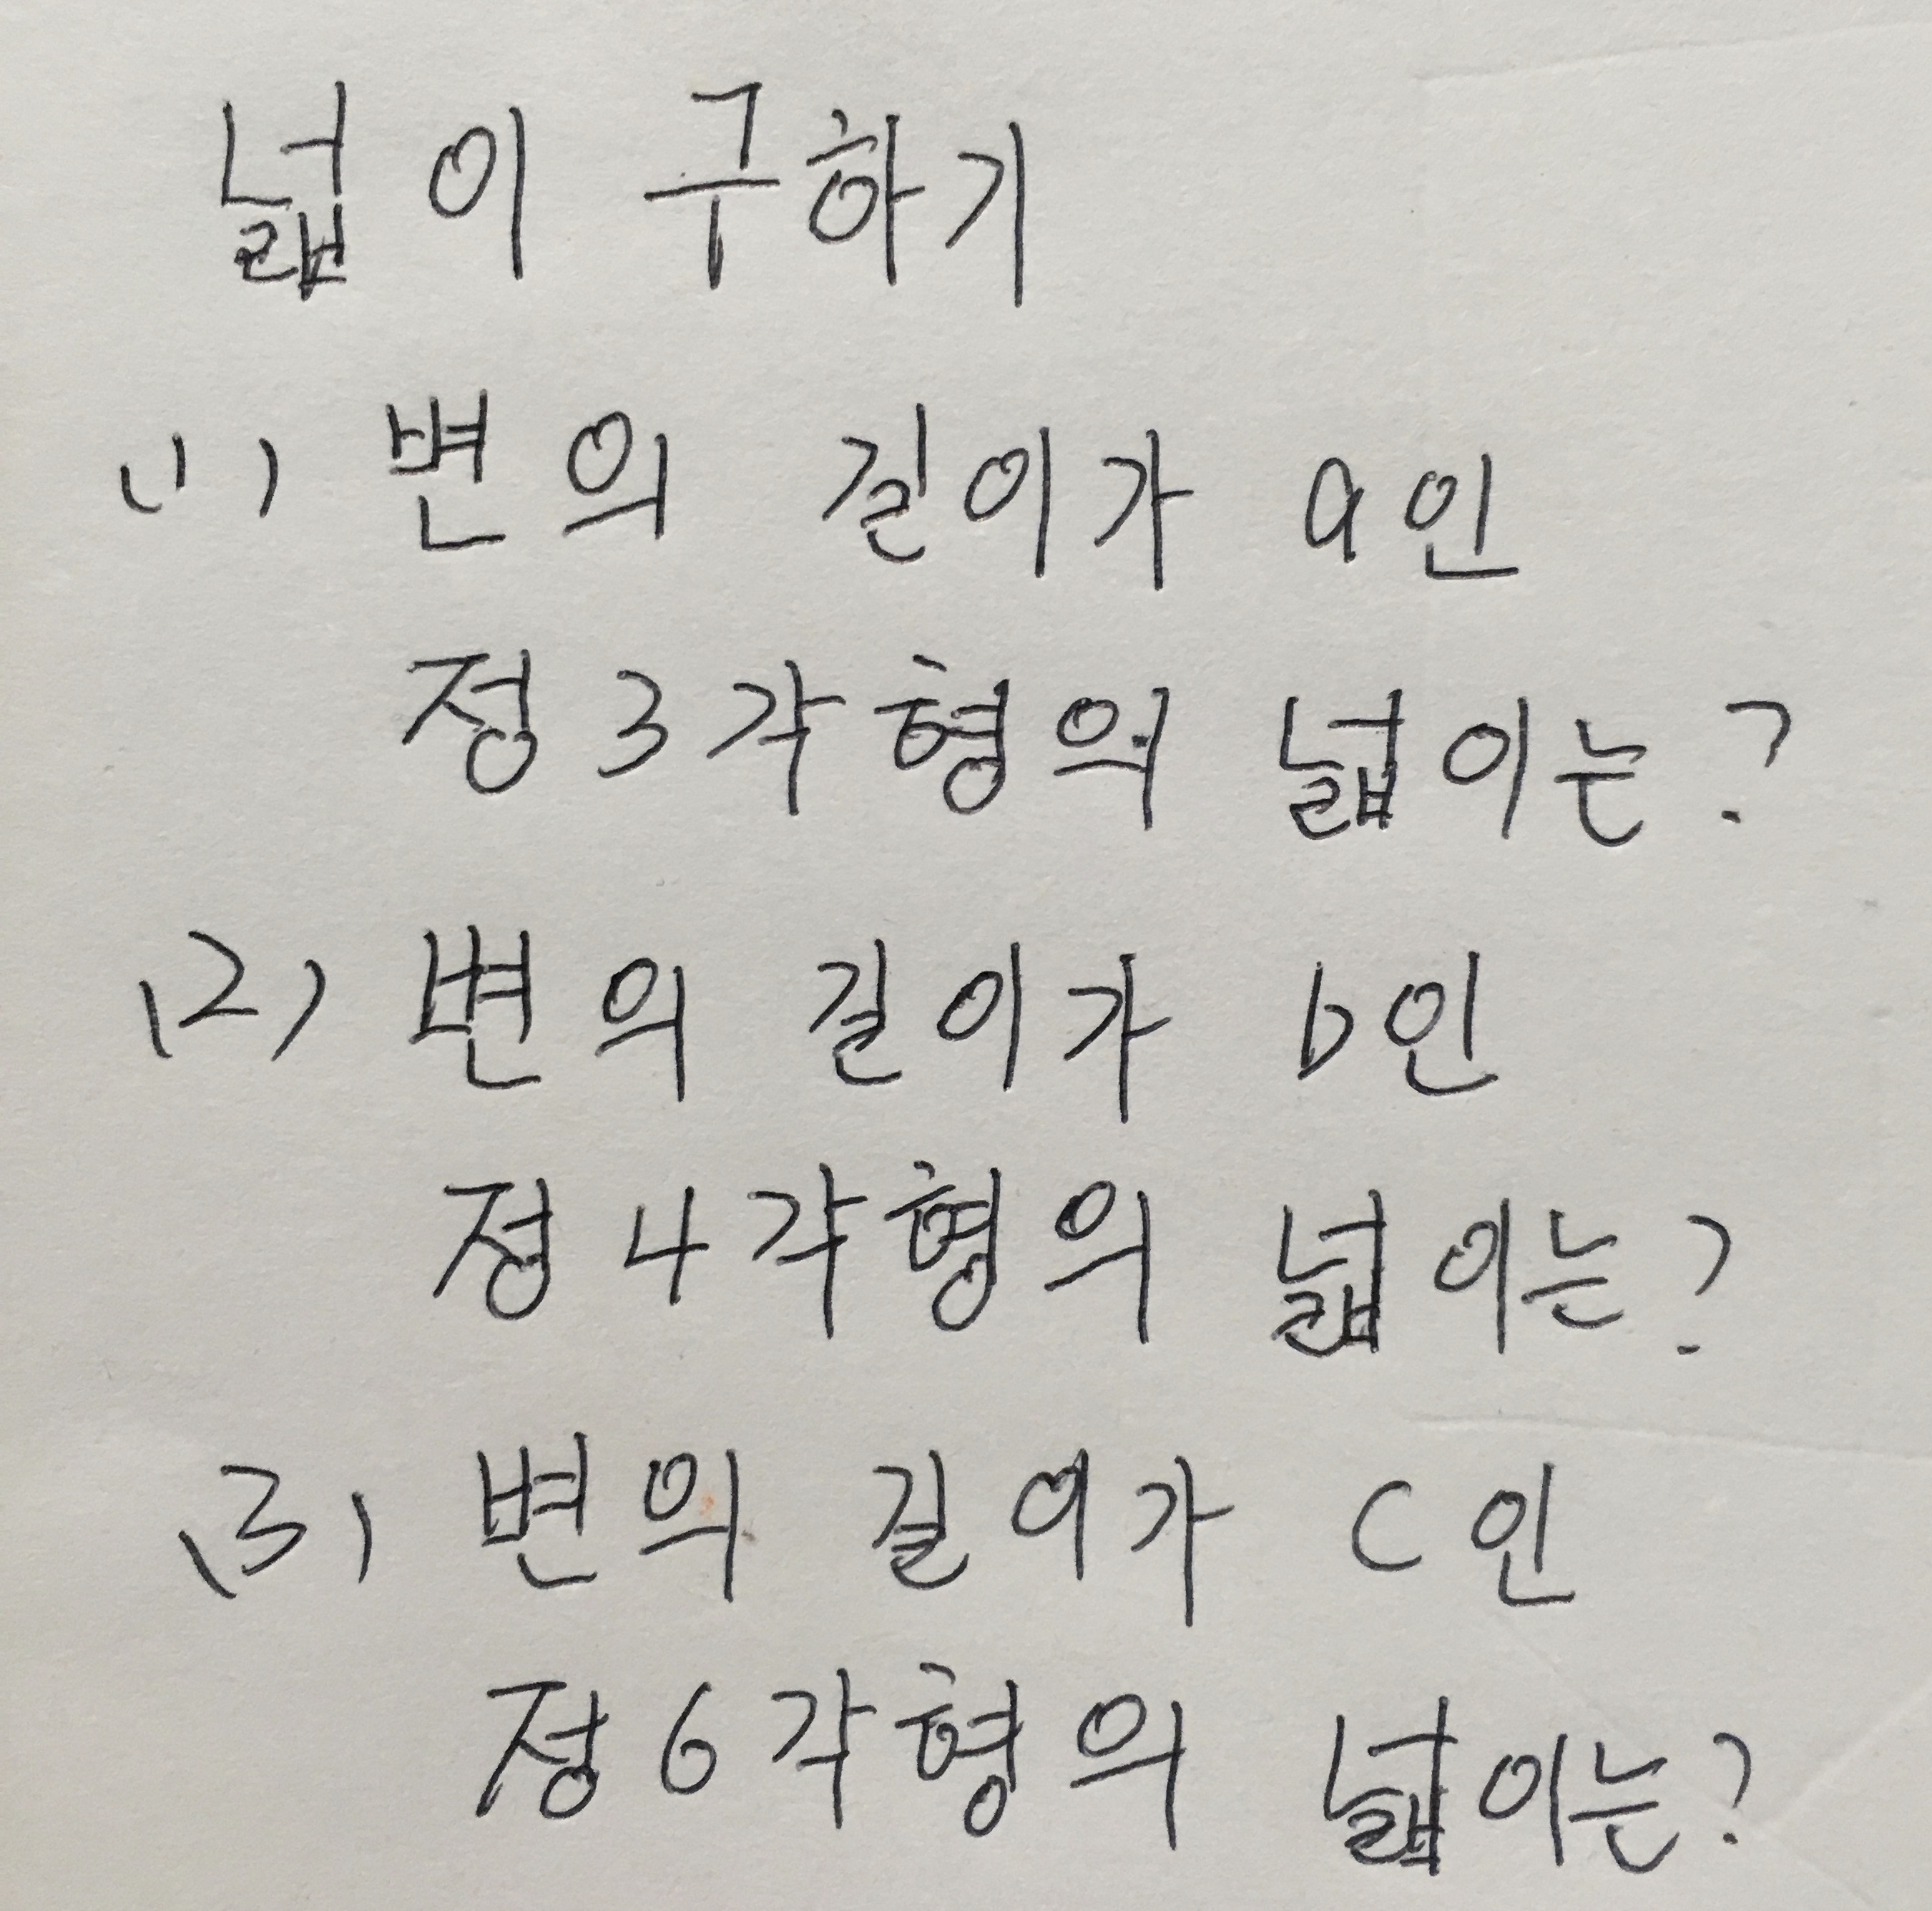 넓이 구하기
(1) 변의 길이가 a인
정3각형의 넓이는?
(2) 변의 길이가 b인
정4각형의 넓이는?
(3) 변의 길이가 c인
정6각형의 넓이는?